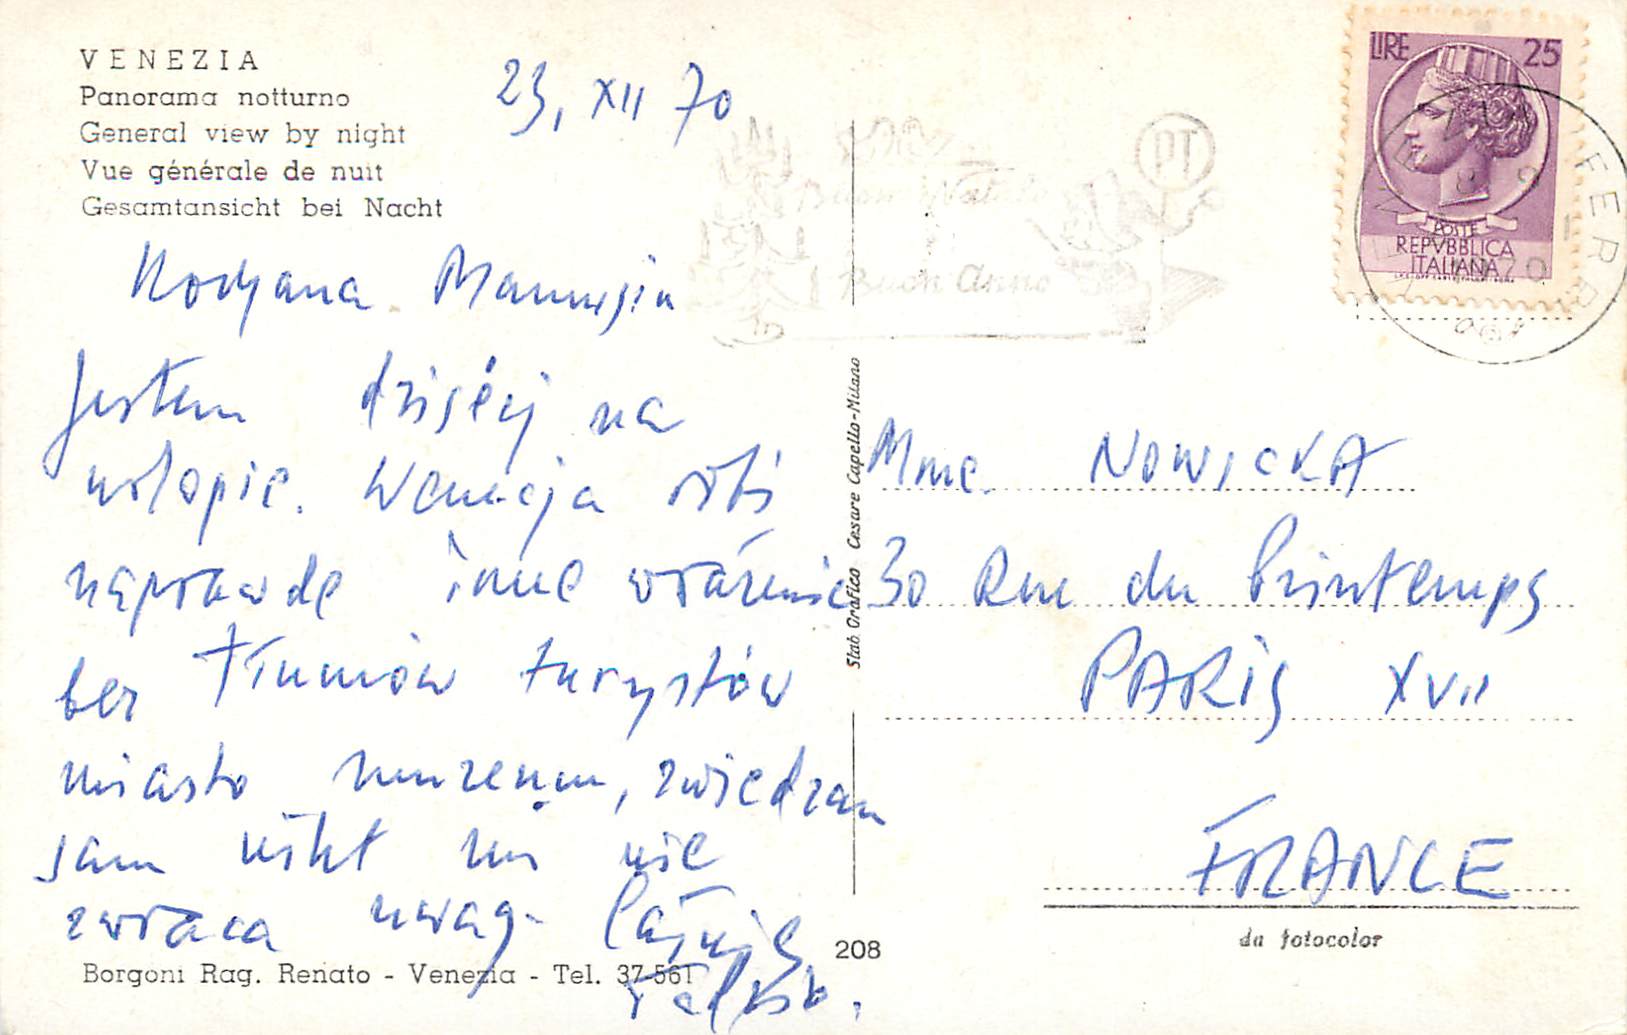 VENEZIA
Panorama notturno
General view by night
Vue générale de nuit
Gesamtansicht bei Nacht
23, XII 70
Kochana Mamusiu
Jestem dzisiéj na
urlopie. Wenecja robi
naprawdę inne wrażenie
bez tłumów turystów
miasto muzeum, zwiedzam
sam nikt mi nie
zwraca uwag
Borgoni Rag. Renato - Venezia - Tel. 37-561
208
Stab. Grafico Cesare Capello-Milano
Buon Natale
Buon Anno
PT
LIRE 25
POSTE
REPVBBLICA
ITALIANA
Mme. NOWICKA
30 Rue du Printemps
PARIS XVII
FRANCE
da fotocolor